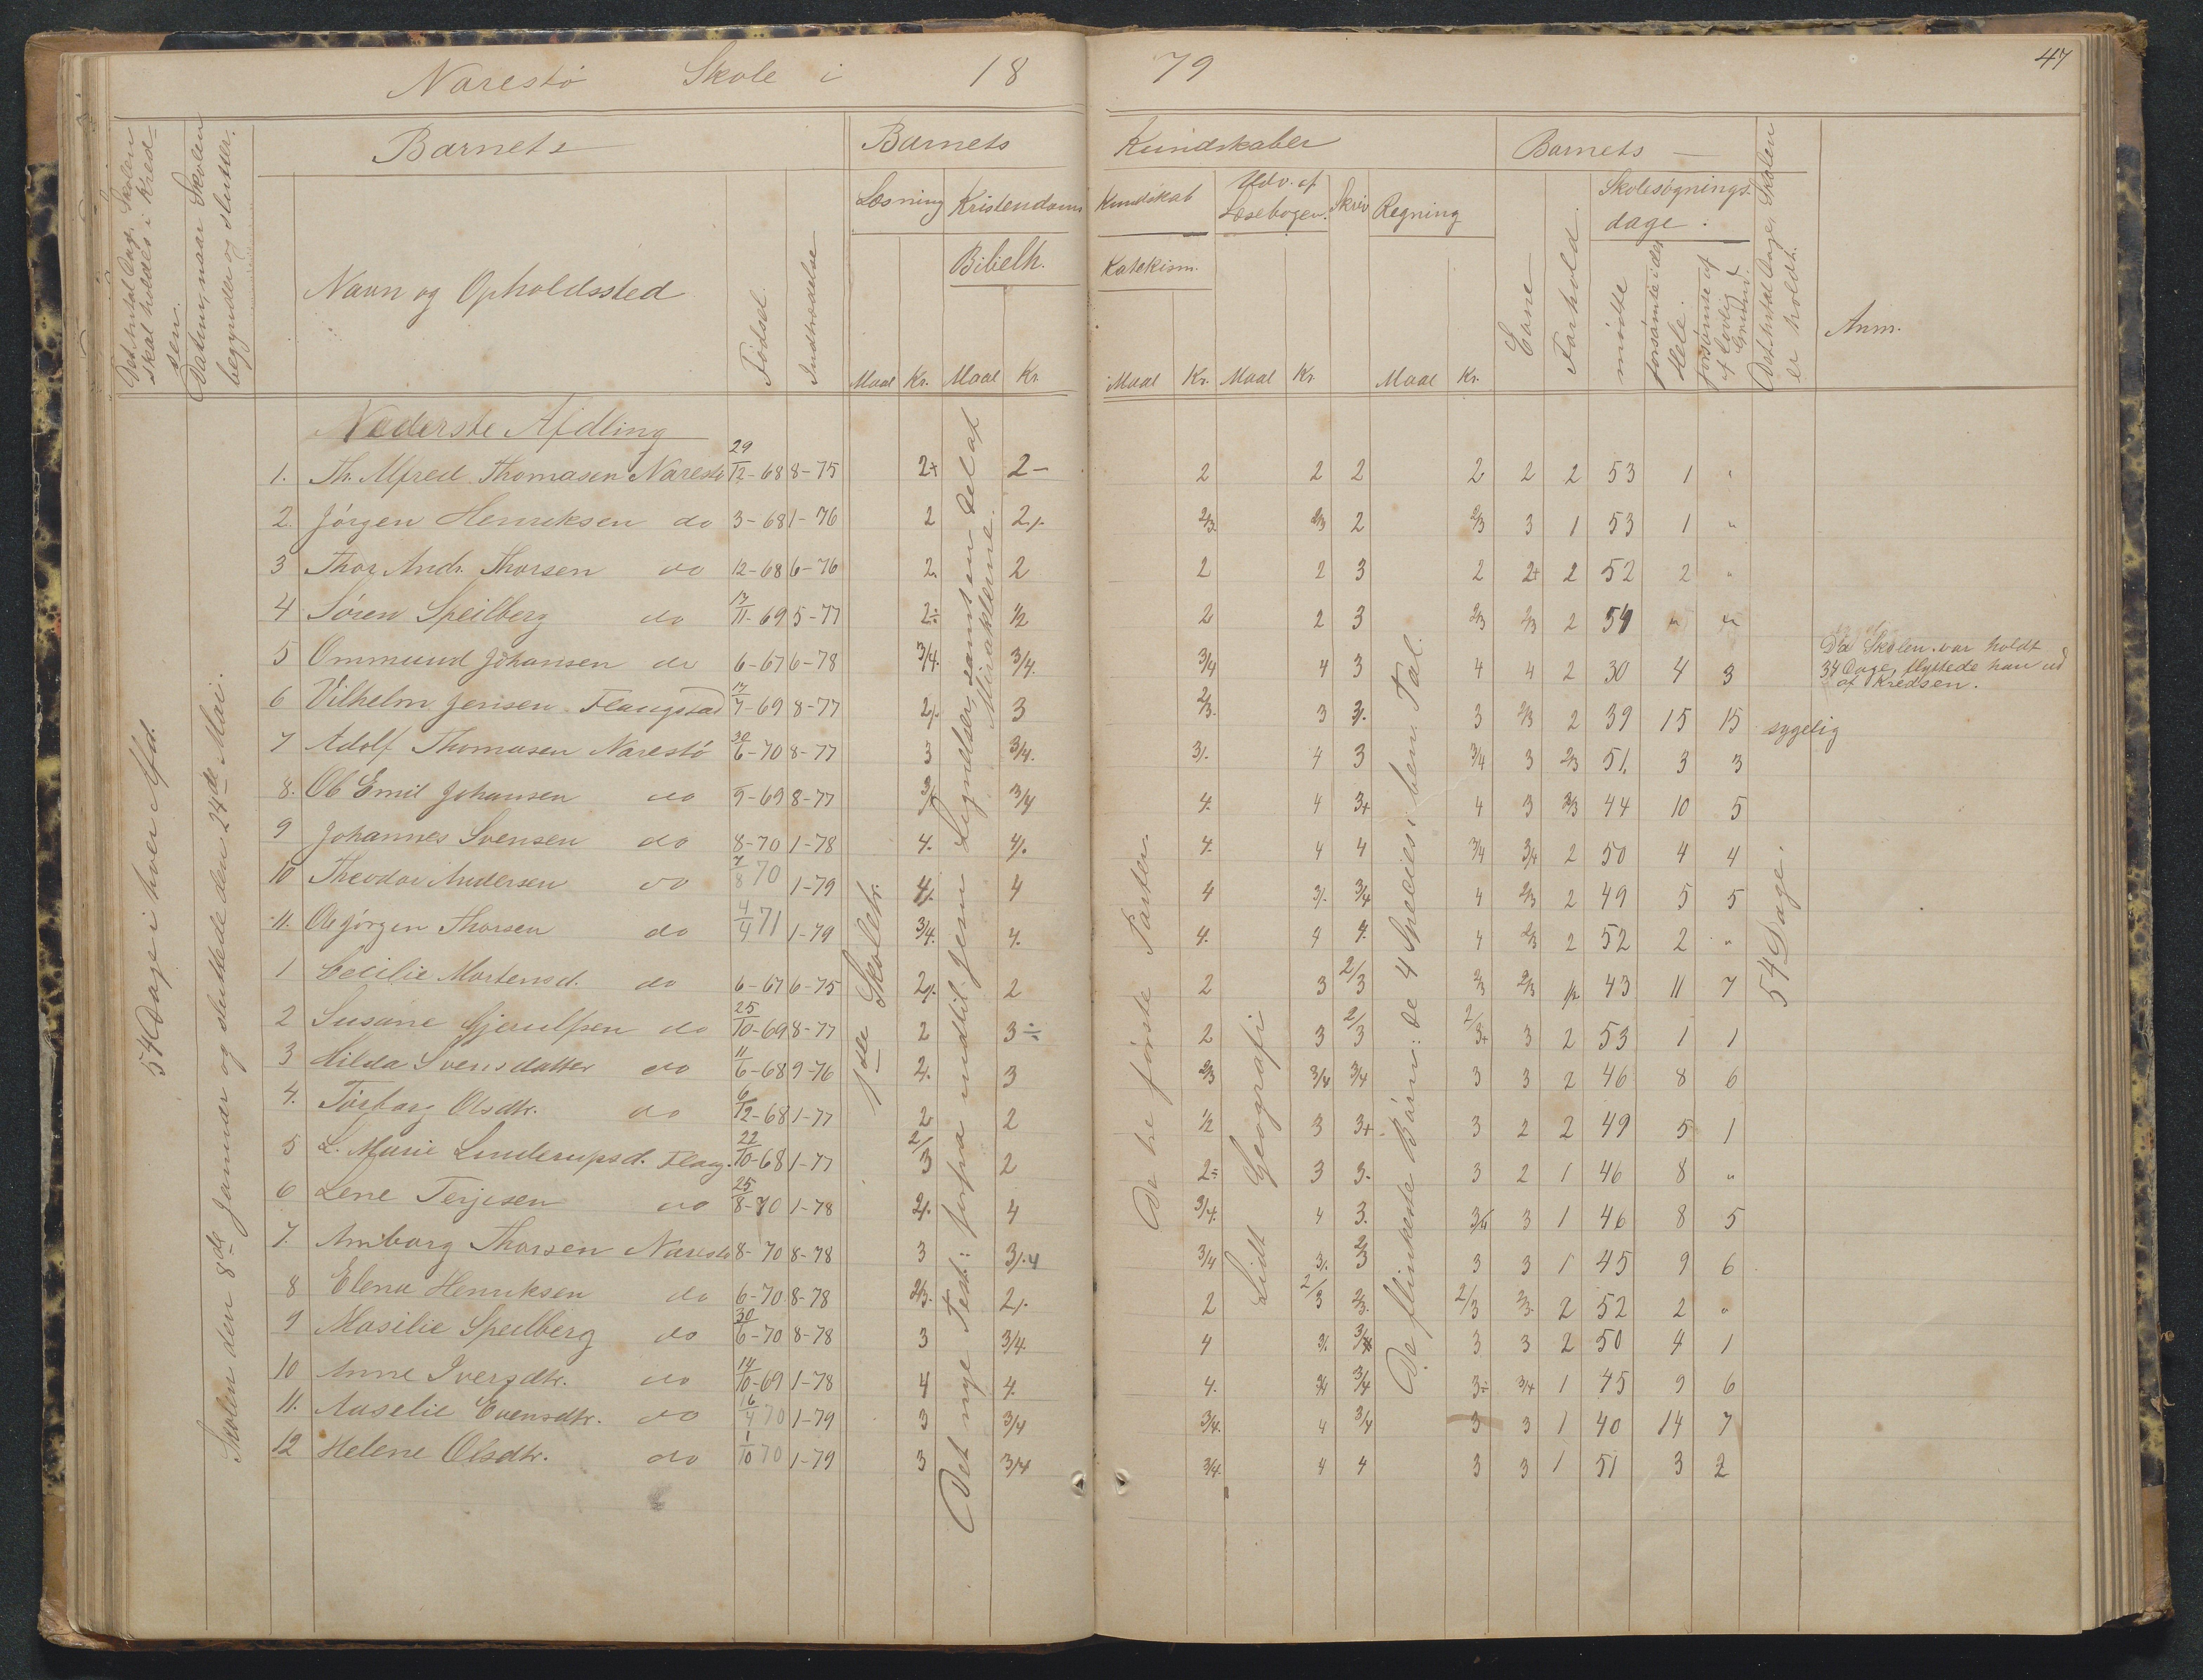 Narestö Skole i 18 79
47
Det Antal Dage Skolen skal holdes i Kredsen.
Datum, naar Skolen begynder og slutter.
Barnets
Navn og Opholdssted
Födsel.
Indtrædelse
Barnets Kundskaber
Læsning
Kristendoms Kundskab
Udv. af Læsebogen.
Skriv
Regning
Bibelh.
Katekism.
Maal Kr. Maal Kr. Maal Kr. Maal Kr. Maal Kr.
Barnets
Evne
Forhold.
Skolesögningsdage:
mödte
forsömte i det Hele.
forsömte af lovlig Grund.
Det Antal Dage Skolen er holdt.
Anm.
54 Dage i hver Afd.
Skolen den 8de Januar og sluttede den 24de Mai.
1ste Skoletr.
Det nye Test.: forfra indtil Jesu Lignelser, samt en Del af Miraklerne.
De tre förste Parter.
Lidt Geografi
De flinkeste Börn: de 4 Species i ben. Tal.
54 Dage.
Nederste Afdling
1. Th. Alfred Thomasen Narestö 29/12-68 8-75 2+ 2- 2 2 2 2 2 2 53 1 "
2. Jörgen Henriksen do 3-68 1-76 2 2/. 2/3. 2/3 2 2/3 3 1 53 1 "
3 Thor Andr. Thorsen do 12-68 6-76 2. 2 2 2 3 2 2+ 2 52 2 "
4 Sören Speilberg do 17/11-69 5-77 2÷ 1/2 2 2 3 2/3 2/3 2 54 " "
5 Ommund Johansen do 6-67 6-78 3/4. 3/4. 3/4 4 3 4 4 2 30 4 3 Da Skolen var holdt 34 Dage, flyttede han ud af Kredsen.
6 Vilhelm Jensen Flangstad 17/7-69 8-77 2/. 3 2/3. 3 3/. 3 2/3 2 39 15 15 sygelig
7 Adolf Thomasen Narestö 30/6-70 8-77 3 3/4. 3/. 4 3 3/4 3 2/3 51. 3 3
8. Ol. Emil Johansen do 9-69 8-77 3/. 3/4 4. 4 3+ 4 3 2/3 44 10 5
9 Johannes Svensen do 8-70 1-78 4. 4/. 4. 4 4 3/4 3/4 2 50 4 4
10 Theodor Andersen do 7/8 70 1-79 4/. 4 4 3/. 3/4 4 2/3 2 49 5 5
11. Ol. Jörgen Thorsen do 4/4 71 1-79 3/4. 4. 4. 4 4. 4 2/3 2 52 2 "
1 Cecilie Mortensd. do 6-67 6-75 2/. 2 2 3 2/3 2/3 2/3 1/2 43 11 7
2 Susane Gjerulfsen do 25/10-69 8-77 2 3÷ 2 3 2/3 2/3+ 3 2 53 1 1
3 Hilda Svensdatter do 11/6-68 9-76 2. 3 2/3 3/4 3/4 3 3 2 46 8 6
4. Torborg Olsdtr. do 6/12-68 1-77 2 2 1/2 3 3+ 3 2 2 49 5 1
5 L. Marie Linderupsd. Flang. 22/10-68 1-77 2/3 2 2÷ 3 3. 3 2 1 46 8 "
6 Lene Terjesen do 25/8-70 1-78 2/. 4 3/4. 4 3. 3/4 3 1 46 8 5
7. Amborg Thorsen Narestö 8-70 8-78 3 3/.4 3/4 3/. 2/3 3 3 1 45 9 6
8 Elena Henriksen do 6-70 8-78 2/3. 2/. 2 2/3 2/3. 2/3 2/3. 2 52 2 "
9 Masilie Speilberg do 30/6-70 8-78 3 3/4. 4 3/. 3/4 3 3 2 50 4 1
10 Anne Iversdtr. do 14/10-69 1-78 4 4. 4. 3/4 3/4 3÷ 3/4 1 45 9 6
11. Auselie Evensdtr. do 16/4 70 1-79 3 3/4 3/4. 4 3/4 3 3 1 40 14 7
12 Helene Olsdtr. do 1/10 70 1-79 3 3/4 3/4. 4 4 3 3 1 51 3 2